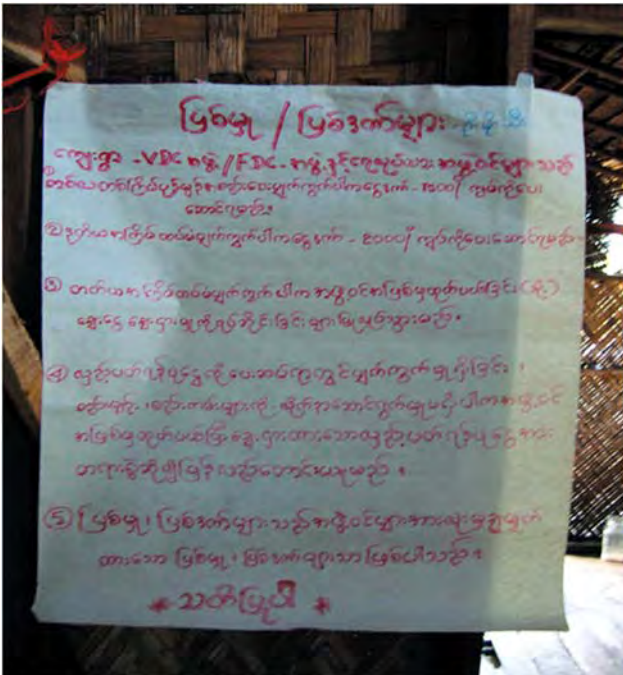 ပြစ်မှု / ပြစ်ဒဏ်များ
ကျေးရွာ -VDC အဖွဲ့ /FDC- အဖွဲ့နှင့်ရေလုပ်သား အဖွဲ့ဝင်များသည်
① တစ်လတစ်ကြိမ်ပုံမှန်အစည်းအဝေးပျက်ကွက်ပါကငွေဒဏ် - ၁၀၀၀/ ကျပ်ကိုပေး
ဆောင်ရမည်။
② ဒုတိယအကြိမ်ထပ်မံပျက်ကွက်ပါကငွေဒဏ် - ၃၀၀၀/ ကျပ်ကိုပေးဆောင်ရမည်။
③ တတိယအကြိမ်ထပ်မံပျက်ကွက်ပါက အဖွဲ့ဝင်အဖြစ်မှထုတ်ပယ်ခြင်း (သို့)
ချေးငွေ ချေးငှားမှုကိုရပ်ဆိုင်းခြင်းများပြုလုပ်သွားမည်။
④ လှည့်ပတ်ရန်ပုံငွေကိုပေးဆပ်ရာတွင်ပျက်ကွက်မှုရှိခြင်း ၊
စည်းမျဉ်း ၊ စည်းကမ်းများကို လိုက်နာဆောင်ရွက်မှုမရှိပါကအဖွဲ့ဝင်
အဖြစ်မှထုတ်ပယ်ပြီးချေးငှားထားသောလှည့်ပတ်ရန်ပုံငွေအား
တရားစွဲဆို၍ပြန်လည်တောင်းယူမည် ။
⑤ ပြစ်မှု ၊ ပြစ်ဒဏ်များသည်အဖွဲ့ဝင်များအားလုံးမှချမှတ်
ထားသော ပြစ်မှု ၊ ပြစ်ဒဏ်များသာဖြစ်ပါသည်။
* သတိပြုပါ *